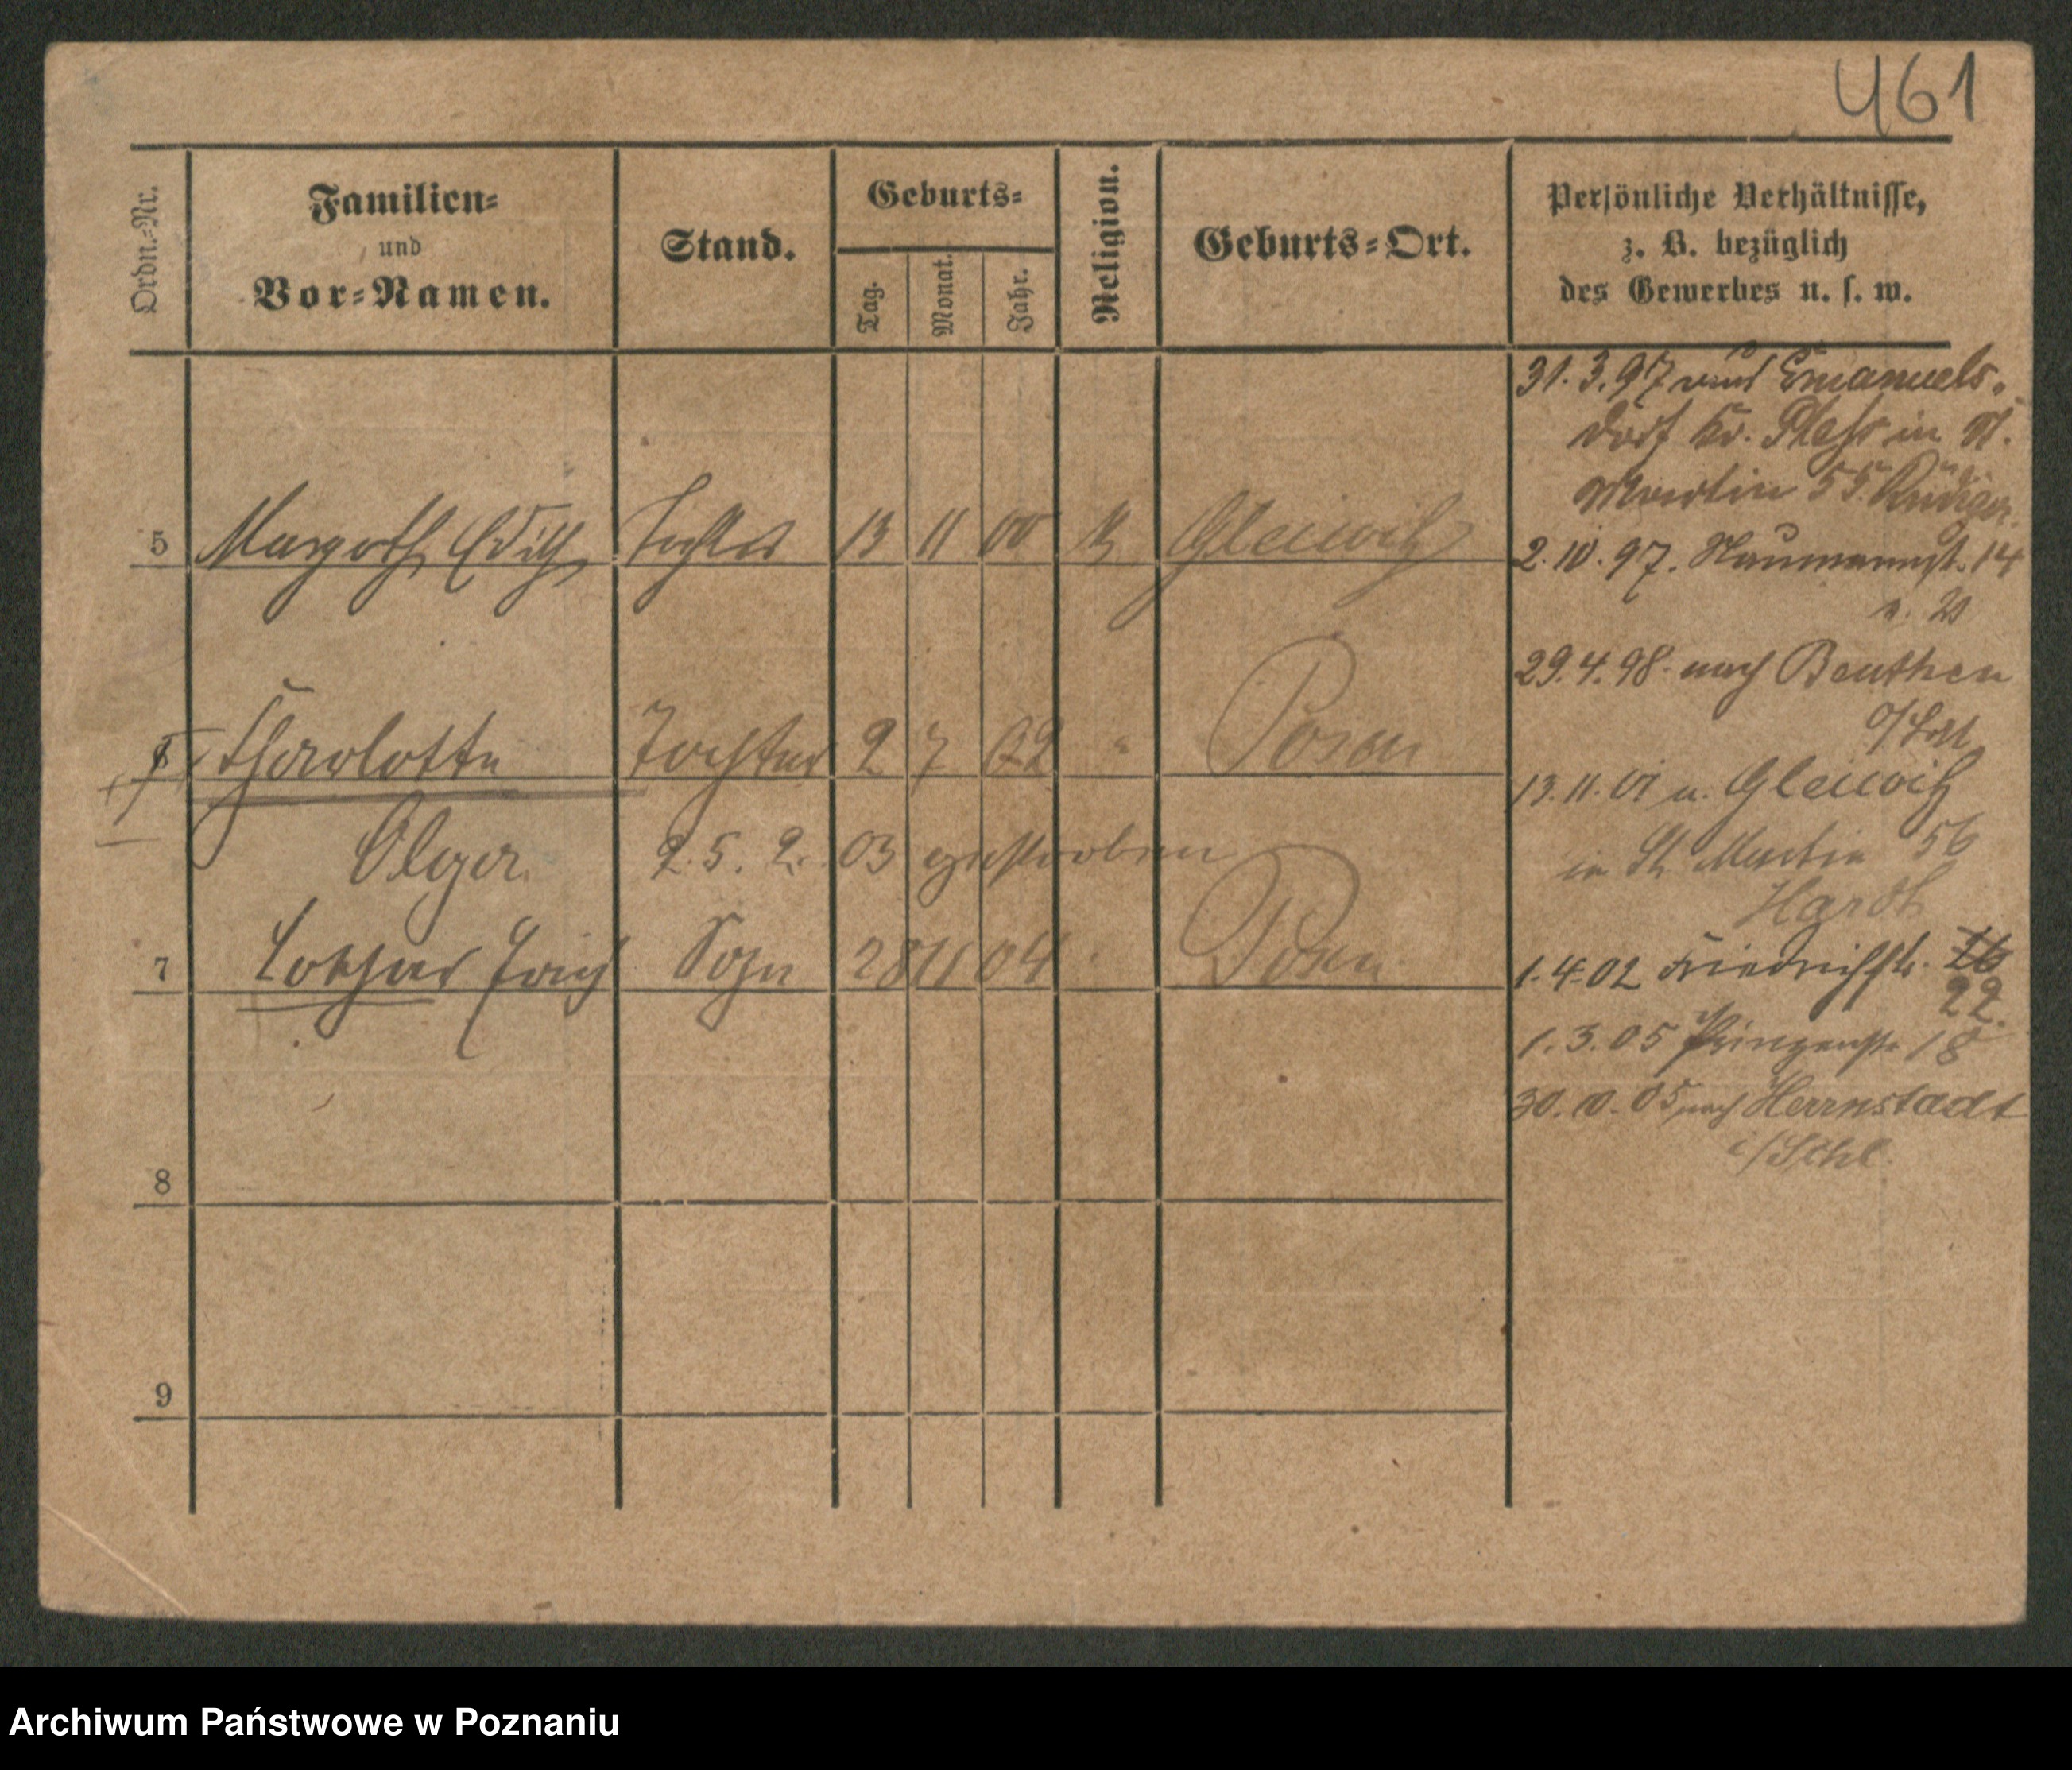 461
Ordn.-Nr.
Familien-
und
Vor-Namen.
Stand.
Geburts-
Tag.
Monat.
Jahr.
Religion.
Geburts-Ort.
Persönliche Verhältnisse,
z. B. bezüglich
des Gewerbes u. s. w.
5 Margoth Edith Tochter 13 11 00 Gleiwitz
Charlotte Tochter 2 7 02 " Posen
Olga 25. 2. 03 gestorben
7 Lothar Erich Sohn 28 11 04 Posen
8
9
31. 3. 97 aus Emanuels-
dorf Kr. Pless in St.
Martin 55
2. 10. 97. Naumannst. 14
29. 4. 98. nach Beuthen
13. 11. 01 a. Gleiwitz
in St. Martin 56
Hardt
1. 4. 02 Friedrichstr. 16
22.
1. 3. 05 Prinzenstr. 18
30. 10. 05 nach Herrnstadt
i/Schl.
Archiwum Państwowe w Poznaniu